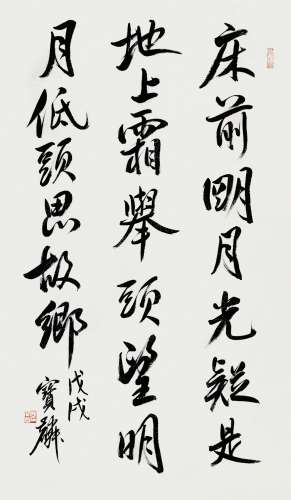 床前明月光疑是
地上霜舉頭望明
月低頭思故鄉
戊戌
寶麟